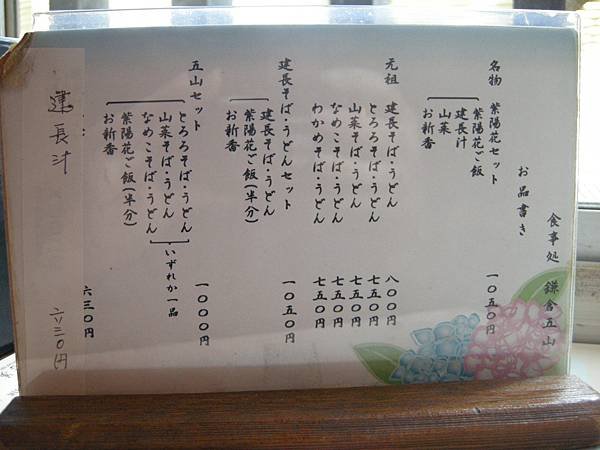 食事処 鎌倉五山
お品書き
名物 紫陽花セット 一〇五〇円
紫陽花ご飯
建長汁
山菜
お新香
元祖 建長そば・うどん 八〇〇円
とろろそば・うどん 七五〇円
山菜そば・うどん 七五〇円
なめこそば・うどん 七五〇円
わかめそば・うどん 七五〇円
建長そば・うどんセット 一〇五〇円
建長そば・うどん
紫陽花ご飯(半分)
お新香
五山セット 一〇〇〇円
とろろそば・うどん
山菜そば・うどん
なめこそば・うどん
いずれか一品
紫陽花ご飯(半分)
お新香
六三〇円
建長汁 六三〇円